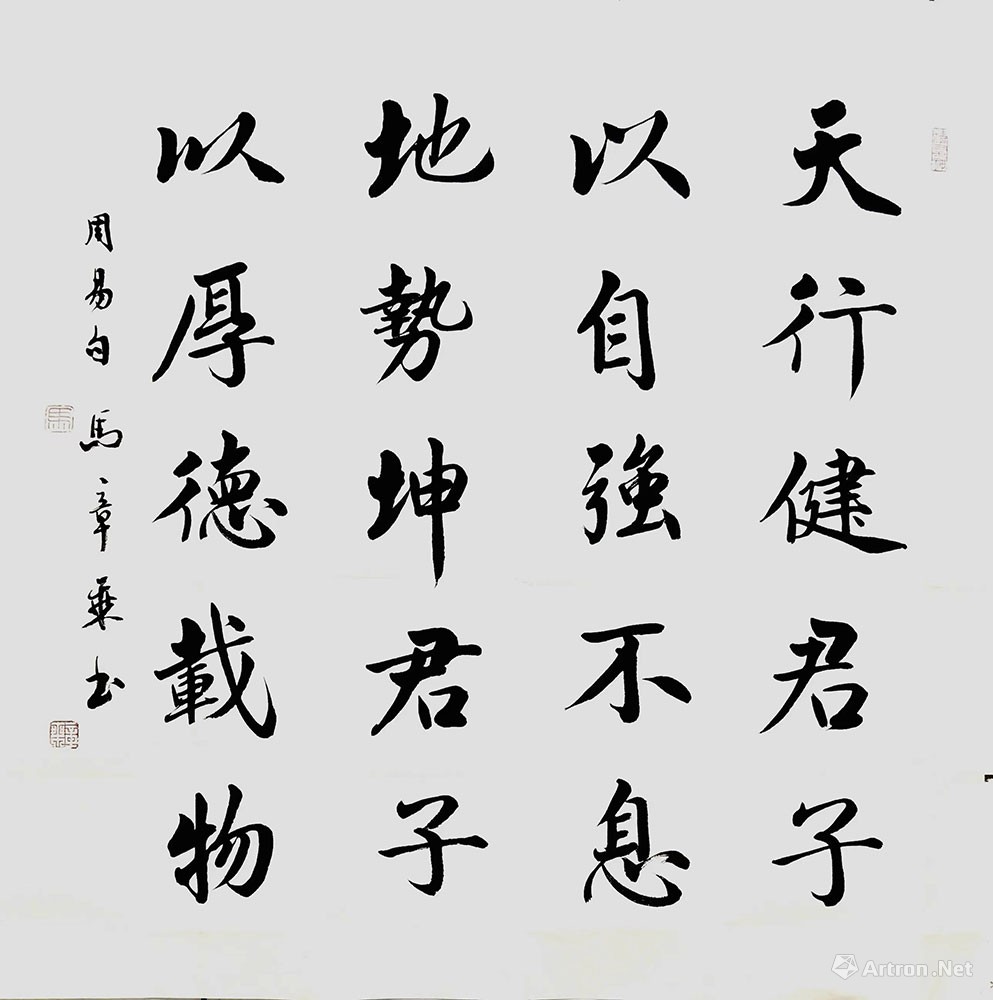 天行健君子
以自強不息
地勢坤君子
以厚德載物
周易句 馬章乘书
Artron.Net